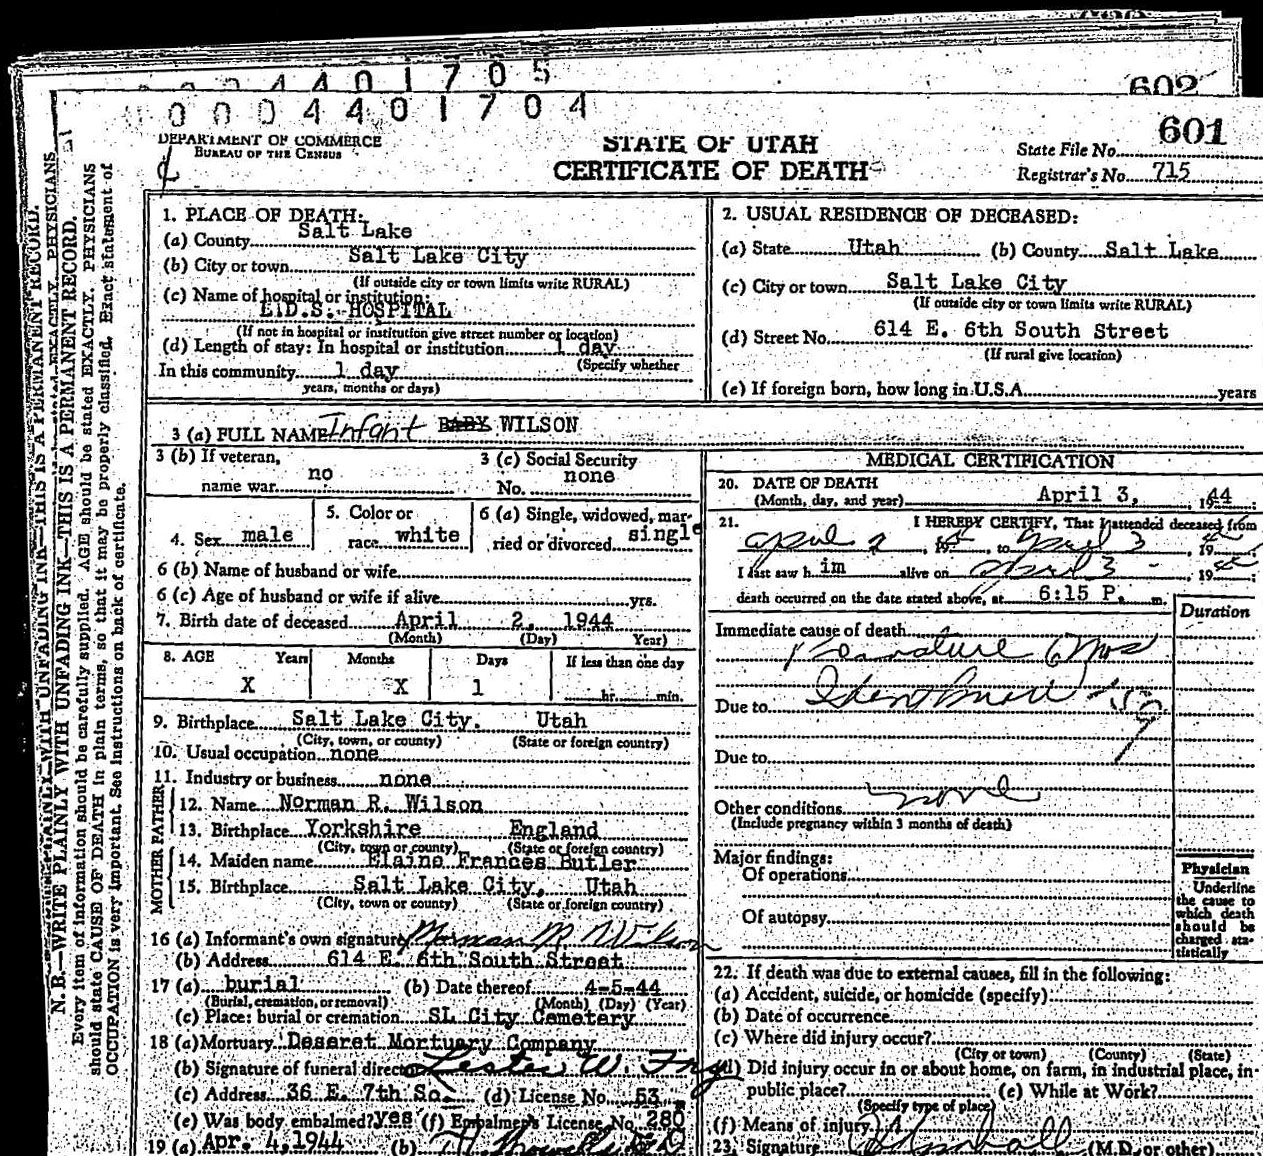 0004401705
602
0004401704
601
DEPARTMENT OF COMMERCE
BUREAU OF THE CENSUS
STATE OF UTAH
CERTIFICATE OF DEATH
State File No.
Registrar's No. 715
N. B.—WRITE PLAINLY WITH UNFADING INK—THIS IS A PERMANENT RECORD.
Every item of information should be carefully supplied. AGE should be stated EXACTLY. PHYSICIANS
should state CAUSE OF DEATH in plain terms, so that it may be properly classified. Exact statement of
OCCUPATION is very important. See instructions on back of certificate.
1. PLACE OF DEATH:
(a) County Salt Lake
(b) City or town Salt Lake City
(If outside city or town limits write RURAL)
(c) Name of hospital or institution:
L.D.S. HOSPITAL
(If not in hospital or institution give street number or location)
(d) Length of stay: In hospital or institution 1 day
(Specify whether
In this community 1 day
years, months or days)
2. USUAL RESIDENCE OF DECEASED:
(a) State Utah (b) County Salt Lake
(c) City or town Salt Lake City
(If outside city or town limits write RURAL)
(d) Street No. 614 E. 6th South Street
(If rural give location)
(e) If foreign born, how long in U.S.A. years
3 (a) FULL NAME Infant BABY WILSON
3 (b) If veteran,
name war no
3 (c) Social Security
No. none
4. Sex male
5. Color or
race white
6 (a) Single, widowed, mar-
ried or divorced single
6 (b) Name of husband or wife
6 (c) Age of husband or wife if alive yrs.
7. Birth date of deceased April 2, 1944
(Month) (Day) Year)
8. AGE Years Months Days If less than one day
X X 1 hr. min.
9. Birthplace Salt Lake City. Utah
(City, town, or county) (State or foreign country)
10. Usual occupation none
11. Industry or business none
FATHER
12. Name Norman R. Wilson
13. Birthplace Yorkshire England
(City, town or county) (State or foreign country)
MOTHER
14. Maiden name Elaine Frances Butler
15. Birthplace Salt Lake City, Utah
(City, town or county) (State or foreign country)
16 (a) Informant's own signature Norman R. Wilson
(b) Address 614 E. 6th South Street
17 (a) burial (b) Date thereof 4-5-44
(Burial, cremation, or removal) (Month) (Day) (Year)
(c) Place: burial or cremation SL City Cemetary
18 (a) Mortuary Deseret Mortuary Company
(b) Signature of funeral director Lester W.
(c) Address 36 E. 7th So. (d) License No. 53
(e) Was body embalmed? yes (f) Embalmer's License No. 280
19 (a) Apr. 4, 1944 (b)
MEDICAL CERTIFICATION
20. DATE OF DEATH
(Month, day, and year) April 3, 1944
21. I HEREBY CERTIFY, That I attended deceased from
April 2, 19 , to April 3, 19
I last saw him alive on April 3 19
death occurred on the date stated above, at 6:15 P. m.
Duration
Immediate cause of death
Premature 6 mos
Due to
Due to
Other conditions none
(Include pregnancy within 3 months of death)
Major findings:
Of operations
Of autopsy
Physician
Underline
the cause to
which death
should be
charged sta-
tistically
22. If death was due to external causes, fill in the following:
(a) Accident, suicide, or homicide (specify)
(b) Date of occurrence
(c) Where did injury occur?
(City or town) (County) (State)
(d) Did injury occur in or about home, on farm, in industrial place, in
public place? (e) While at Work?
(Specify type of place)
(f) Means of injury
23. Signature (M.D. or other)